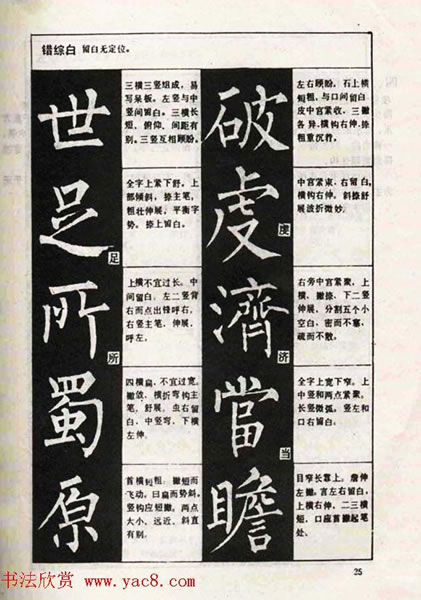 错综白 留白无定位。
世
三横三竖组成，易
写呆板。左竖与中
竖间留白。三横长
短、俯仰、间距有
别。三竖互相顾盼。
破
左右顾盼，石上横
短粗，与口间留白，
皮中宫紧收，三撇
各异，横钩右伸，捺
粗重沉着。
足
全字上紧下舒。上
部倾斜，捺主笔，
粗壮伸展，平衡字
势。捺上留白。
虔
中宫紧束，右留白，
横钩右伸。斜捺舒
展波折微妙。
所
上横不宜过长，中
间留白。左二竖背
右而点出锋呼右。
右竖主笔，伸展，
呼左。
济
右旁中宫紧聚，上
横、撇捺、下二竖
伸展，分割五个小
空白，密而不塞，
疏而不散。
蜀
四横扁，不宜过宽。
撇敛，横折弯钩主
笔，舒展，虫右留
白，中竖弯，下横
左伸。
当
全字上宽下窄。上
中竖和两点紧聚，
长竖微弧。竖左和
口右留白。
原
首横短粗，撇短而
飞动。曰扁而势斜。
竖钩应短撇。两点
大小、远近、斜直
有别。
瞻
目窄长靠上。詹伸
左撇。言左右留白，
上横右伸，二三横
短，口应首撇起笔
处。
25
书法欣赏 www.yac8.com